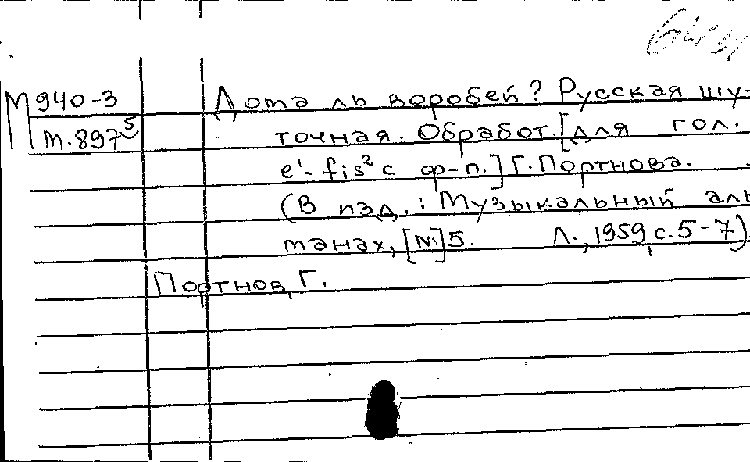 М940-3 Дома ль воробей? Русская шу-
т.897⁵ точная. Обработ. [для гол.
e¹-fis² с ф-п.] Г. Портнова.
(В изд.: Музыкальный аль
манах, [№]5. Л., 1959, с. 5-7)
Портнов, Г.